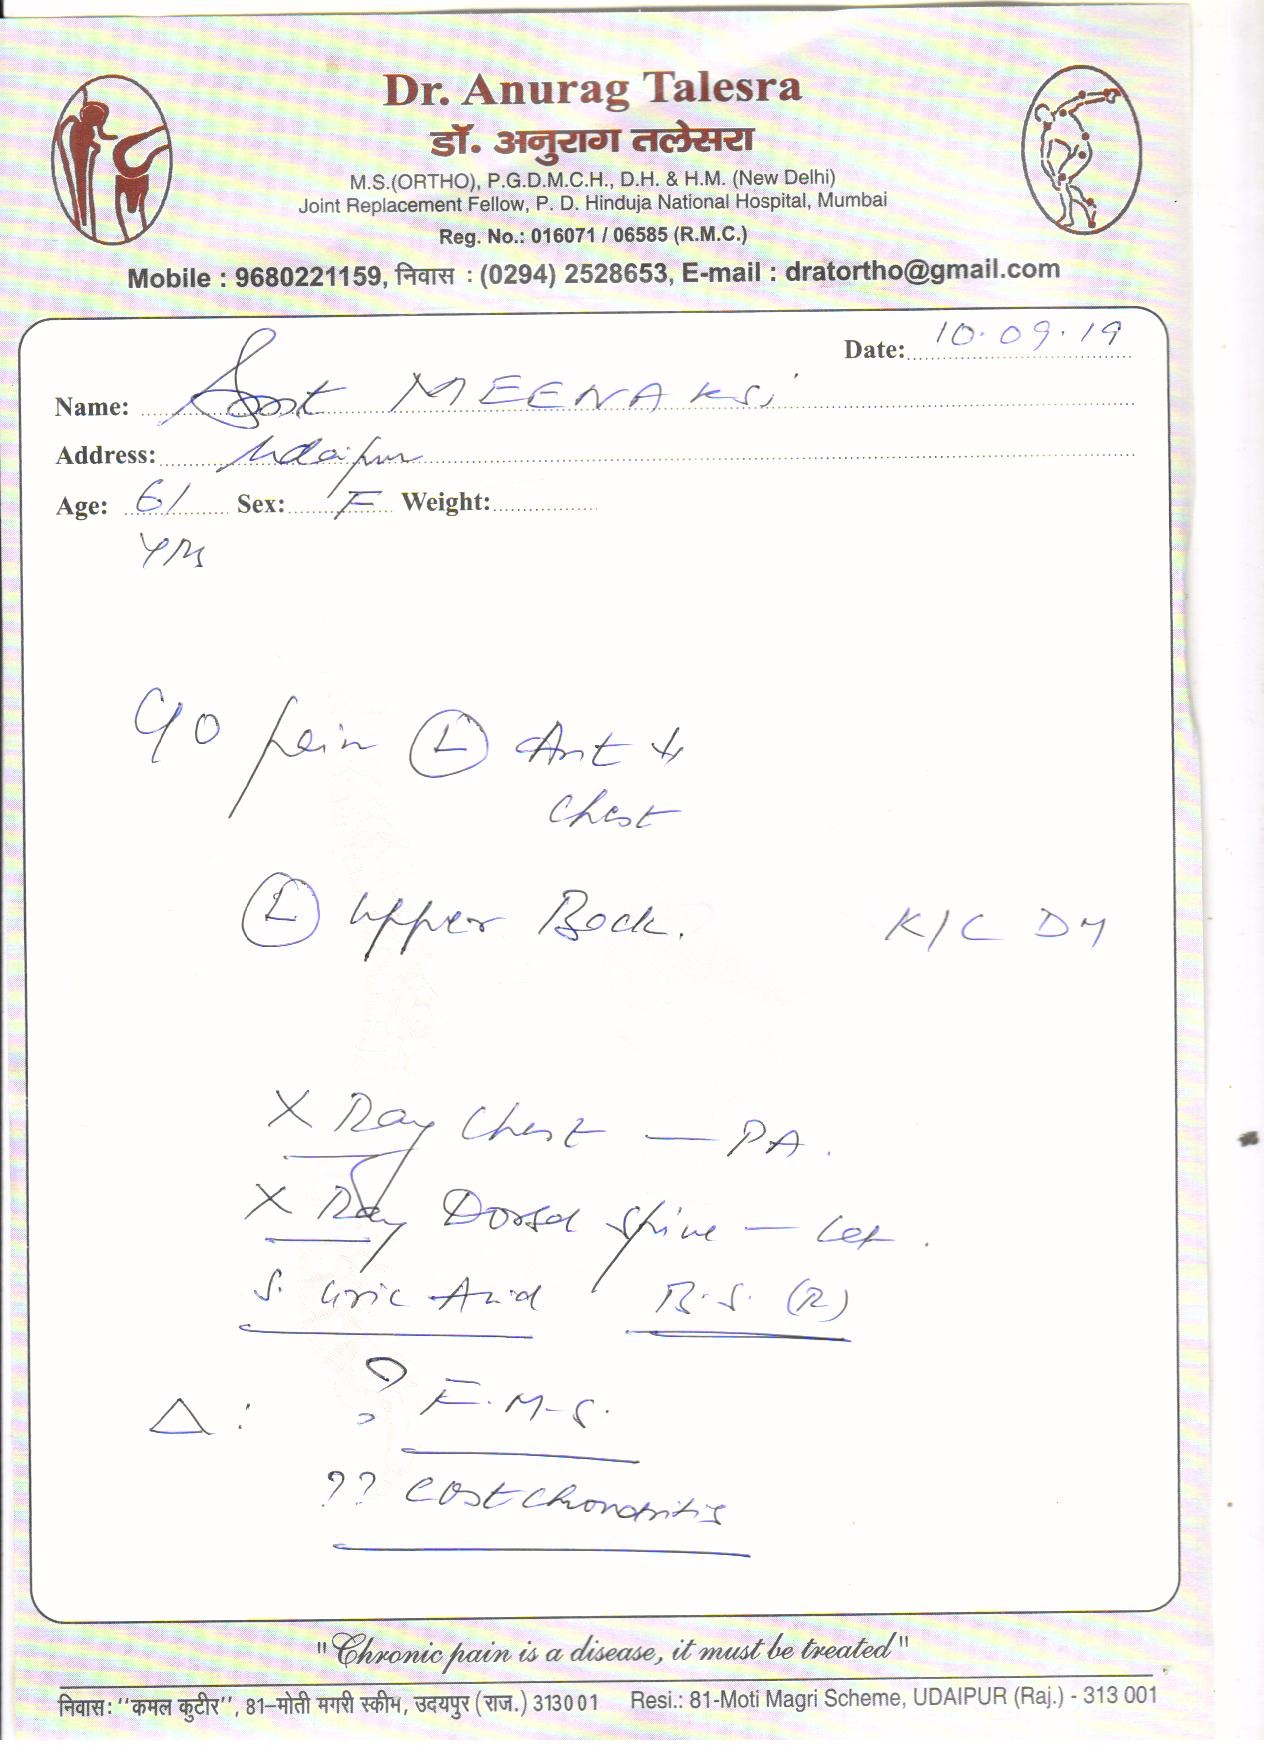 Dr. Anurag Talesra
डॉ. अनुराग तलेसरा
M.S.(ORTHO), P.G.D.M.C.H., D.H. & H.M. (New Delhi)
Joint Replacement Fellow, P. D. Hinduja National Hospital, Mumbai
Reg. No.: 016071 / 06585 (R.M.C.)
Mobile : 9680221159, निवास : (0294) 2528653, E-mail : dratortho@gmail.com
Date: 10.09.19
Name: Smt MEENAKSI
Address: Udaipur
Age: 61 Sex: F Weight:
YRS
C/O Pain (L) Ant
Chest
(L) Upper Back. K/C DM
X Ray Chest — PA.
X Ray Dorsal Spine — Lat.
S. Uric Acid B.S. (R)
Δ : ? F.M.S.
?? Costchondritis
"Chronic pain is a disease, it must be treated"
निवास: "कमल कुटीर", 81–मोती मगरी स्कीम, उदयपुर (राज.) 313001 Resi.: 81-Moti Magri Scheme, UDAIPUR (Raj.) - 313 001